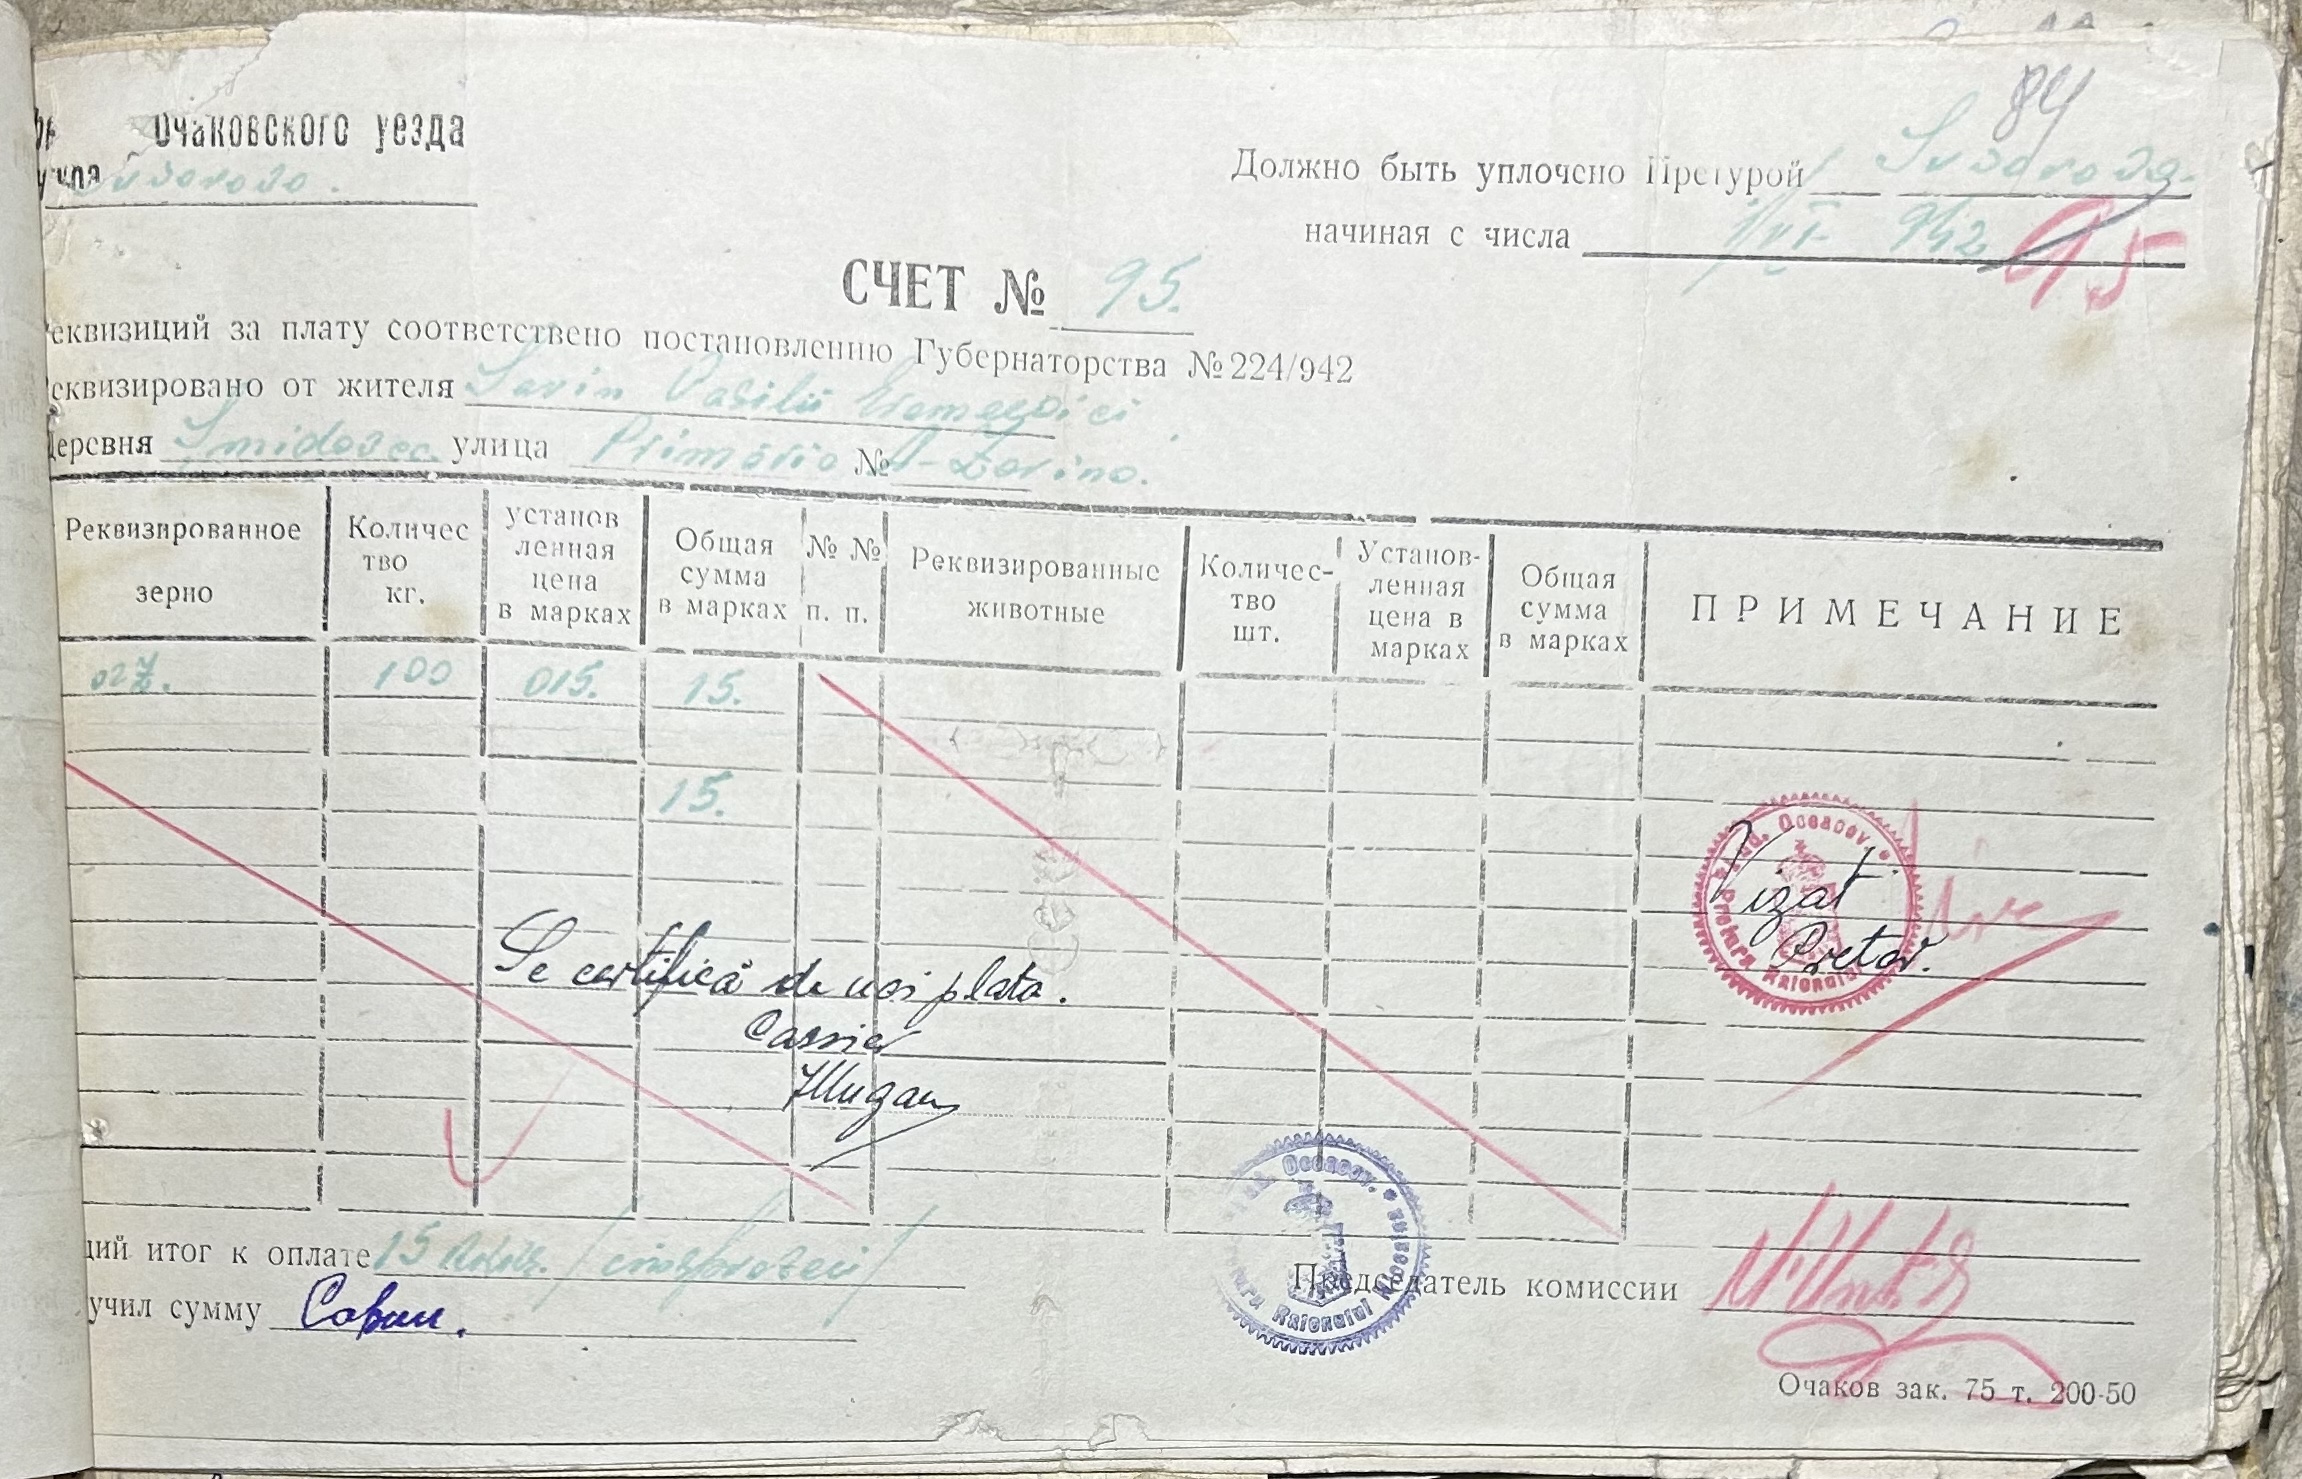 84
Очаковского уезда
Suvorovo.
Должно быть уплочено Претурой Suvorova.
начиная с числа 1/VI 942
95
СЧЕТ № 95.
еквизиций за плату соответствено постановлению Губернаторства № 224/942
еквизировано от жителя Savin Vasilii
Деревня улица Primăria №
Реквизированное зерно
Количес тво кг.
установ ленная цена в марках
Общая сумма в марках
№ № п. п.
Реквизированные животные
Количес- тво шт.
Установ- ленная цена в марках
Общая сумма в марках
ПРИМЕЧАНИЕ
orz. 100 015. 15.
15.
Jud. Oceacov.
Pretura Raionului
Vizat
Pretor.
Se certifică de noi plata.
Cassier
Jud. Oceacov.
Raionului
щий итог к оплате 15 /cinsprezeci/
учил сумму Савин.
Председатель комиссии
Очаков зак. 75 т. 200-50